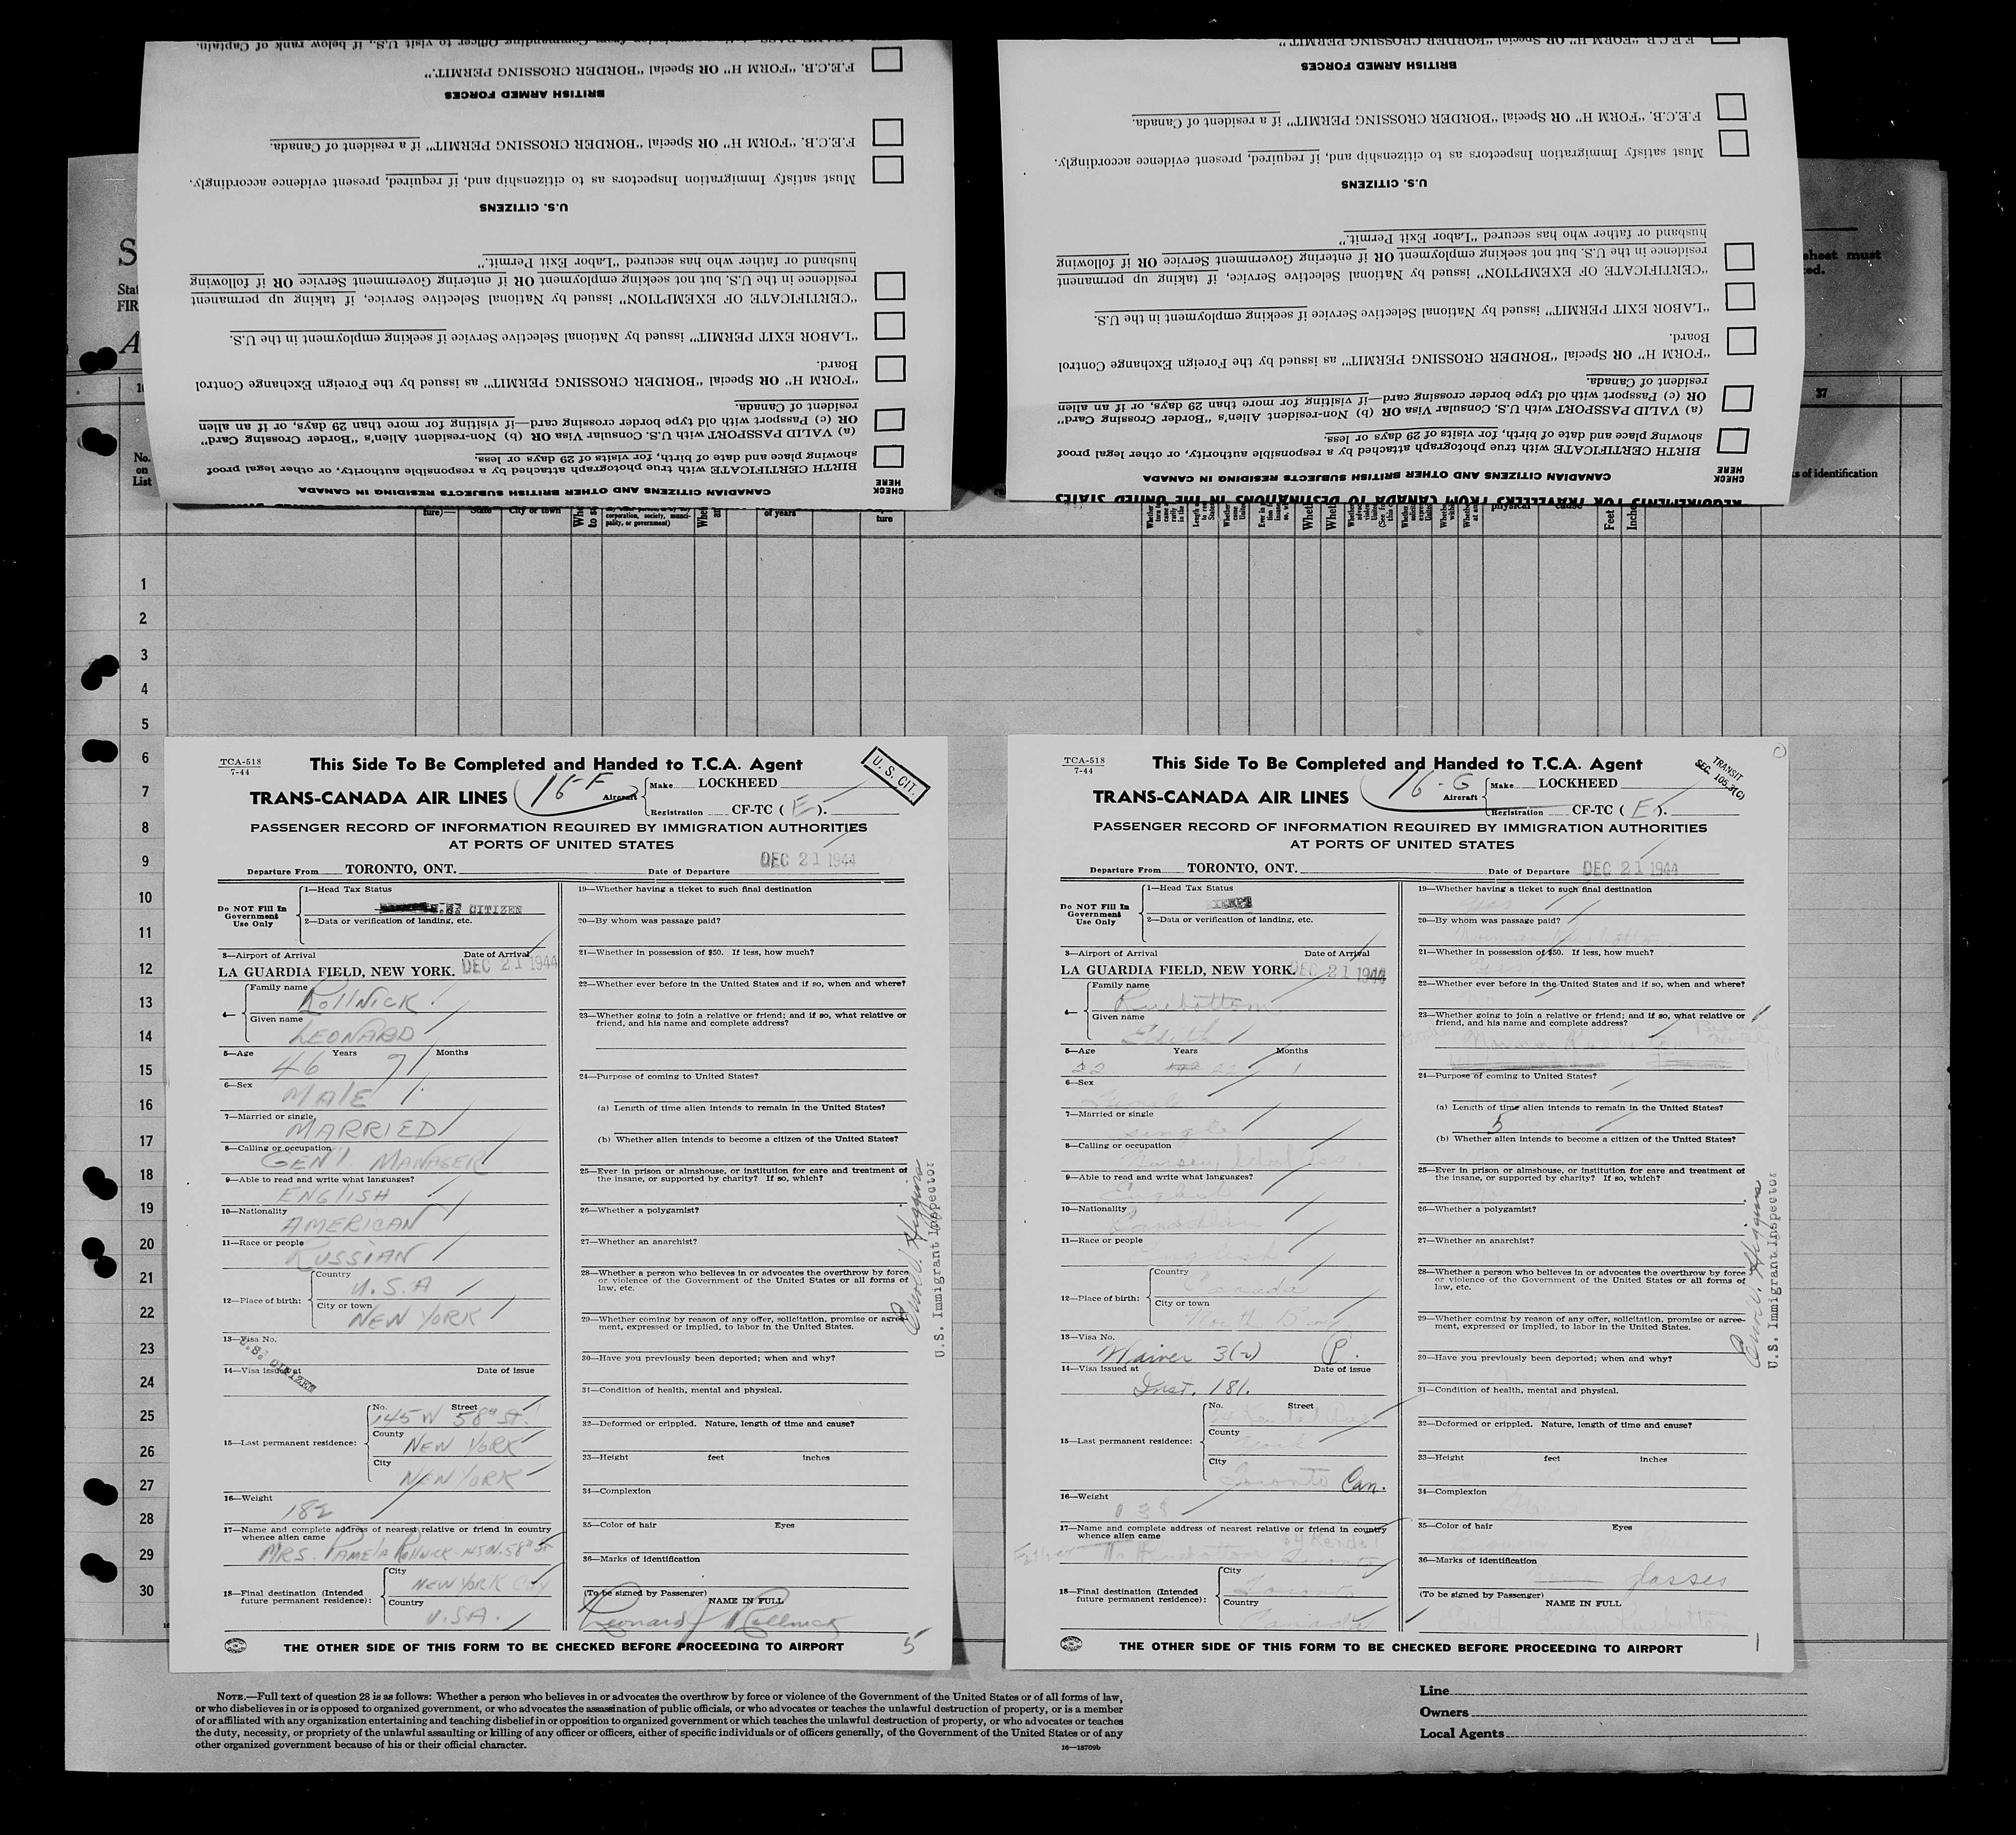 F.E.C.B. "FORM H" OR Special "BORDER CROSSING PERMIT."
BRITISH ARMED FORCES
F.E.C.B. "FORM H" OR Special "BORDER CROSSING PERMIT" if a resident of Canada.
Must satisfy Immigration Inspectors as to citizenship and, if required, present evidence accordingly.
U.S. CITIZENS
husband or father who has secured "Labor Exit Permit."
residence in the U.S. but not seeking employment OR if entering Government Service OR if following
"CERTIFICATE OF EXEMPTION" issued by National Selective Service, if taking up permanent
"LABOR EXIT PERMIT" issued by National Selective Service if seeking employment in the U.S.
Board.
"FORM H" OR Special "BORDER CROSSING PERMIT" as issued by the Foreign Exchange Control
resident of Canada.
OR (c) Passport with old type border crossing card—if visiting for more than 29 days, or if an alien
(a) VALID PASSPORT with U.S. Consular Visa OR (b) Non-resident Alien's "Border Crossing Card"
showing place and date of birth, for visits of 29 days or less.
BIRTH CERTIFICATE with true photograph attached by a responsible authority, or other legal proof
CANADIAN CITIZENS AND OTHER BRITISH SUBJECTS RESIDING IN CANADA
CHECK HERE
F.E.C.B. "FORM H" OR Special "BORDER CROSSING PERMIT."
BRITISH ARMED FORCES
F.E.C.B. "FORM H" OR Special "BORDER CROSSING PERMIT" if a resident of Canada.
Must satisfy Immigration Inspectors as to citizenship and, if required, present evidence accordingly.
U.S. CITIZENS
husband or father who has secured "Labor Exit Permit."
residence in the U.S. but not seeking employment OR if entering Government Service OR if following
"CERTIFICATE OF EXEMPTION" issued by National Selective Service, if taking up permanent
"LABOR EXIT PERMIT" issued by National Selective Service if seeking employment in the U.S.
Board.
"FORM H" OR Special "BORDER CROSSING PERMIT" as issued by the Foreign Exchange Control
resident of Canada.
OR (c) Passport with old type border crossing card—if visiting for more than 29 days, or if an alien
(a) VALID PASSPORT with U.S. Consular Visa OR (b) Non-resident Alien's "Border Crossing Card"
showing place and date of birth, for visits of 29 days or less.
BIRTH CERTIFICATE with true photograph attached by a responsible authority, or other legal proof
CANADIAN CITIZENS AND OTHER BRITISH SUBJECTS RESIDING IN CANADA
CHECK HERE
REQUIREMENTS FOR TRAVELLERS FROM CANADA TO DESTINATIONS IN THE UNITED STATES
No. on List
37
1
2
3
4
5
6
7
8
9
10
11
12
13
14
15
16
17
18
19
20
21
22
23
24
25
26
27
28
29
30
TCA-518
7-44
This Side To Be Completed and Handed to T.C.A. Agent
U.S. CIT.
TRANS-CANADA AIR LINES
16-F
Aircraft
Make LOCKHEED
Registration CF-TC ( E ).
PASSENGER RECORD OF INFORMATION REQUIRED BY IMMIGRATION AUTHORITIES
AT PORTS OF UNITED STATES
Departure From TORONTO, ONT. Date of Departure DEC 21 1944
Do NOT Fill In
Government
Use Only
1—Head Tax Status
U.S. CITIZEN
2—Data or verification of landing, etc.
3—Airport of Arrival Date of Arrival
LA GUARDIA FIELD, NEW YORK. DEC 21 1944
4—
Family name
ROLLNICK
Given name
LEONARD
5—Age Years Months
46 9
6—Sex
MALE
7—Married or single
MARRIED
8—Calling or occupation
GEN'L MANAGER
9—Able to read and write what languages?
ENGLISH
10—Nationality
AMERICAN
11—Race or people
RUSSIAN
12—Place of birth:
Country
U.S.A
City or town
NEW YORK
13—Visa No.
U.S. CITIZEN
14—Visa issued at Date of issue
15—Last permanent residence:
No. Street
145 W 58th ST.
County
NEW YORK
City
NEW YORK
16—Weight
182
17—Name and complete address of nearest relative or friend in country
whence alien came
MRS. PAMELA ROLLNICK - 145 W. 58th St
18—Final destination (Intended
future permanent residence):
City
NEW YORK City
Country
U.S.A.
19—Whether having a ticket to such final destination
20—By whom was passage paid?
21—Whether in possession of $50. If less, how much?
22—Whether ever before in the United States and if so, when and where?
23—Whether going to join a relative or friend; and if so, what relative or
friend, and his name and complete address?
24—Purpose of coming to United States?
(a) Length of time alien intends to remain in the United States?
(b) Whether alien intends to become a citizen of the United States?
25—Ever in prison or almshouse, or institution for care and treatment of
the insane, or supported by charity? If so, which?
26—Whether a polygamist?
27—Whether an anarchist?
28—Whether a person who believes in or advocates the overthrow by force
or violence of the Government of the United States or all forms of
law, etc.
29—Whether coming by reason of any offer, solicitation, promise or agree-
ment, expressed or implied, to labor in the United States.
30—Have you previously been deported; when and why?
31—Condition of health, mental and physical.
32—Deformed or crippled. Nature, length of time and cause?
33—Height feet inches
34—Complexion
35—Color of hair Eyes
36—Marks of identification
(To be signed by Passenger)
NAME IN FULL
Leonard J Rollnick
U.S. Immigrant Inspector
THE OTHER SIDE OF THIS FORM TO BE CHECKED BEFORE PROCEEDING TO AIRPORT
5
TCA-518
7-44
This Side To Be Completed and Handed to T.C.A. Agent
TRANSIT
SEC. 105.3(C)
TRANS-CANADA AIR LINES
16-G
Aircraft
Make LOCKHEED
Registration CF-TC ( E ).
PASSENGER RECORD OF INFORMATION REQUIRED BY IMMIGRATION AUTHORITIES
AT PORTS OF UNITED STATES
Departure From TORONTO, ONT. Date of Departure DEC 21 1944
Do NOT Fill In
Government
Use Only
1—Head Tax Status
2—Data or verification of landing, etc.
3—Airport of Arrival Date of Arrival
LA GUARDIA FIELD, NEW YORK. DEC 21 1944
4—
Family name
Ruebottom
Given name
Edith
5—Age Years Months
22 22 1
6—Sex
Female
7—Married or single
single
8—Calling or occupation
Nursery School
9—Able to read and write what languages?
English
10—Nationality
Canadian
11—Race or people
English
12—Place of birth:
Country
Canada
City or town
North Bay
13—Visa No.
Waiver 3(2) P.
14—Visa issued at Date of issue
Inst. 181.
15—Last permanent residence:
No. Street
64 Kendal Ave
County
York
City
Toronto Can.
16—Weight
17—Name and complete address of nearest relative or friend in country
whence alien came
Father 64 Kendal
Toronto
18—Final destination (Intended
future permanent residence):
City
Toronto
Country
Canada
19—Whether having a ticket to such final destination
yes
20—By whom was passage paid?
21—Whether in possession of $50. If less, how much?
yes
22—Whether ever before in the United States and if so, when and where?
23—Whether going to join a relative or friend; and if so, what relative or
friend, and his name and complete address?
24—Purpose of coming to United States?
(a) Length of time alien intends to remain in the United States?
5
(b) Whether alien intends to become a citizen of the United States?
25—Ever in prison or almshouse, or institution for care and treatment of
the insane, or supported by charity? If so, which?
26—Whether a polygamist?
27—Whether an anarchist?
28—Whether a person who believes in or advocates the overthrow by force
or violence of the Government of the United States or all forms of
law, etc.
29—Whether coming by reason of any offer, solicitation, promise or agree-
ment, expressed or implied, to labor in the United States.
30—Have you previously been deported; when and why?
31—Condition of health, mental and physical.
32—Deformed or crippled. Nature, length of time and cause?
33—Height feet inches
34—Complexion
35—Color of hair Eyes
36—Marks of identification
glasses
(To be signed by Passenger)
NAME IN FULL
U.S. Immigrant Inspector
THE OTHER SIDE OF THIS FORM TO BE CHECKED BEFORE PROCEEDING TO AIRPORT
1
NOTE.—Full text of question 28 is as follows: Whether a person who believes in or advocates the overthrow by force or violence of the Government of the United States or of all forms of law,
or who disbelieves in or is opposed to organized government, or who advocates the assassination of public officials, or who advocates or teaches the unlawful destruction of property, or is a member
of or affiliated with any organization entertaining and teaching disbelief in or opposition to organized government or which teaches the unlawful destruction of property, or who advocates or teaches
the duty, necessity, or propriety of the unlawful assaulting or killing of any officer or officers, either of specific individuals or of officers generally, of the Government of the United States or of any
other organized government because of his or their official character.
16—18709b
Line
Owners
Local Agents